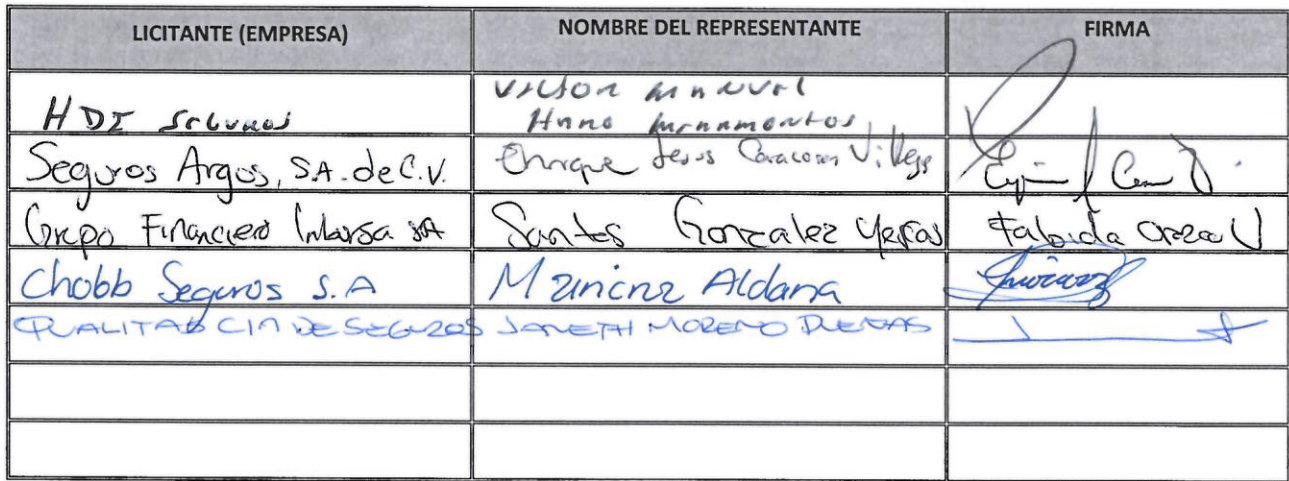 LICITANTE (EMPRESA) NOMBRE DEL REPRESENTANTE FIRMA
HDI Seguros Victor Manuel
Haro
Seguros Argos, S.A. de C.V. Enrique Jesus Villegas
Grupo Financiero Inbursa SA Santos Gonzalez Fabiola
Chubb Seguros S.A Aldana
QUALITAS CIA DE SEGUROS JANETH MORENO DUEÑAS